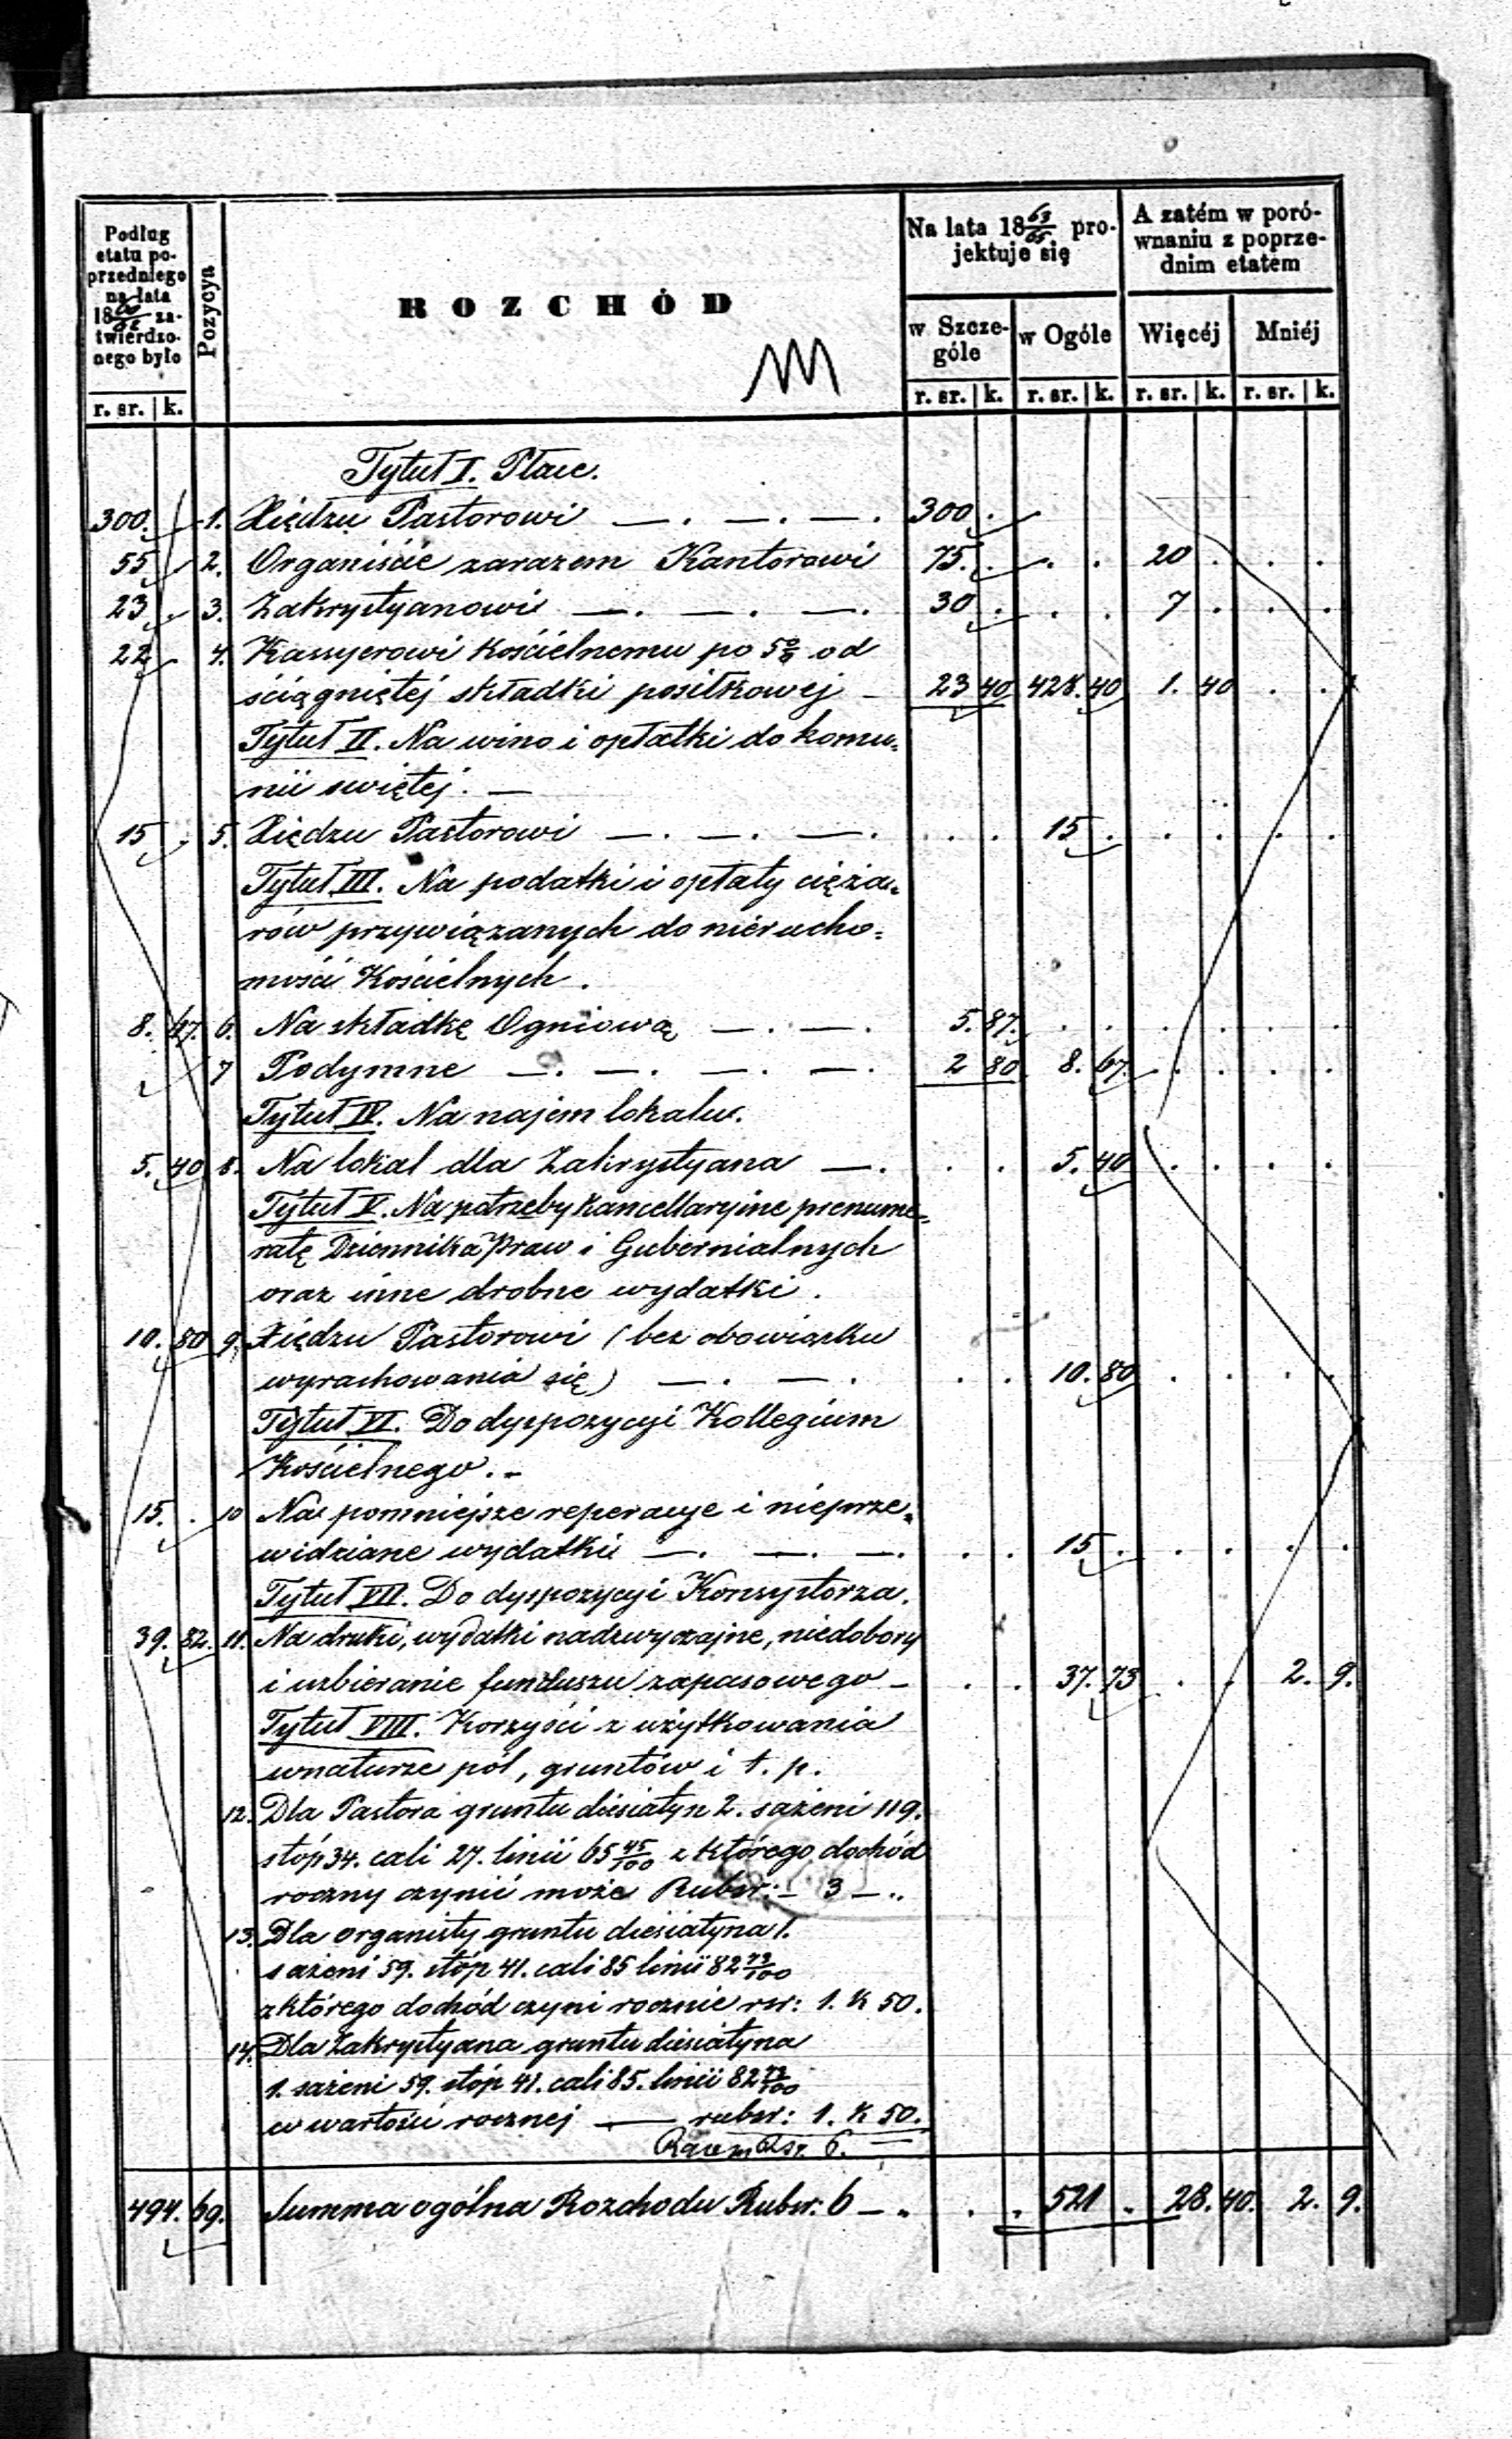 Podług etatu poprzedniego na lata 18 60/62 zatwierdzonego było
Pozycya
ROZCHÓD
Na lata 18 63/65 projektuje się
A zatém w porównaniu z poprzednim etatem
w Szczególe
w Ogóle
Więcéj
Mniéj
r. sr. k. r. sr. k. r. sr. k. r. sr. k. r. sr. k.
Tytuł I. Płace.
300. 1. Xiędzu Pastorowi —. —. —. 300 .
55 2. Organiście zarazem Kantorowi 75. . . . 20 . . .
23 . 3. Zakrystyanowi —. —. —. 30 . . . 7 . . .
22 4. Kassyerowi Kościelnemu po 5% od
ściągniętej składki posiłkowej — 23 40 428. 40 1. 40 . .
Tytuł II. Na wino i opłatki do komu=
nii świętej. —
15 . 5. Xiędzu Pastorowi —. —. —. . . 15 . . . . .
Tytuł III. Na podatki i opłaty cięża=
rów przywiązanych do nierucho=
mości Kościelnych.
8. 67. 6. Na składkę Ogniową —. —. 5. 87. . . . . . .
7 Podymne —. —. —. —. 2 80 8. 67. . . . .
Tytuł IV. Na najem lokalu.
5. 40 8. Na lokal dla Zakrystyana —. . . 5. 40 . . . .
Tytuł V. Na potrzeby kancellaryjne prenume=
ratę Dziennika Praw i Gubernialnych
oraz inne drobne wydatki.
10. 80 9. Xiędzu Pastorowi (bez obowiązku
wyrachowania się) —. —. . . 10. 80 . . . .
Tytuł VI. Do dyspozycyi Kollegium
Kościelnego. –
15. . 10 Na pomniejsze reperacye i nieprze=
widziane wydatki —. —. —. . . 15 . . . . .
Tytuł VII. Do dyspozycyi Konsystorza.
39. 82. 11. Na druki, wydatki nadzwyczajne, niedobory
i uzbieranie funduszu zapasowego – . . 37. 73 . . 2. 9.
Tytuł VIII. Korzyści z użytkowania
w naturze pól, gruntów i t. p.
12. Dla Pastora gruntu diesiatyn 2. sażeni 119.
stóp 34. cali 27. linii 65 45/100 z którego dochód
roczny czynić może Rubsr: – 3 – „
13. Dla organisty gruntu diesiatyna 1.
sażeni 59. stóp 41. cali 85 linii 82 73/100
z którego dochód czyni rocznie rsr: 1. K 50.
14. Dla Zakrystyana gruntu diesiatyna
1. sażeni 59. stóp 41. cali 85. linii 82 73/100
w wartości rocznej —— rubsr: 1. K 50.
Razem Rsr. 6. —
494. 69. Summa ogólna Rozchodu Rubsr: 6 – „ . . 521 . 28. 40. 2. 9.